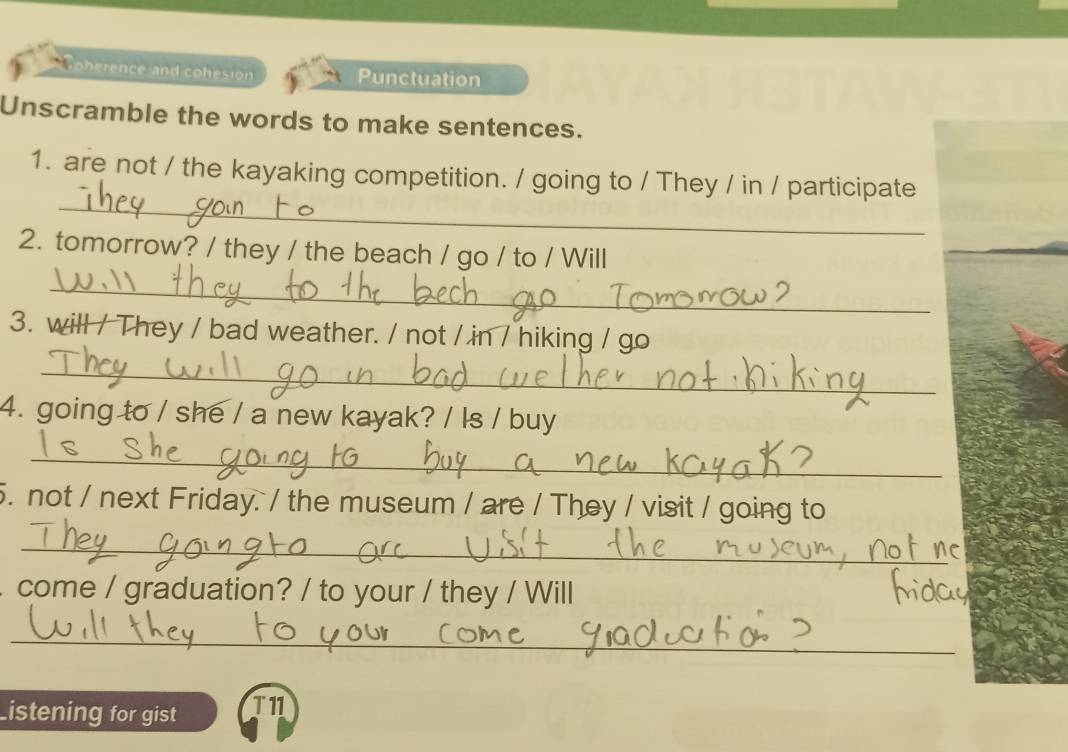 Coherence and cohesion Punctuation
Unscramble the words to make sentences.
1. are not / the kayaking competition. / going to / They / in / participate
They goin to
2. tomorrow? / they / the beach / go / to / Will
Will they to the bech go Tomorrow?
3. will / They / bad weather. / not / in / hiking / go
They will go in bad wether not hiking
4. going to / she / a new kayak? / Is / buy
Is she going to buy a new kayak?
5. not / next Friday. / the museum / are / They / visit / going to
They going to are visit the museum, not ne
friday
. come / graduation? / to your / they / Will
Will they to your come graduation?
Listening for gist T 11